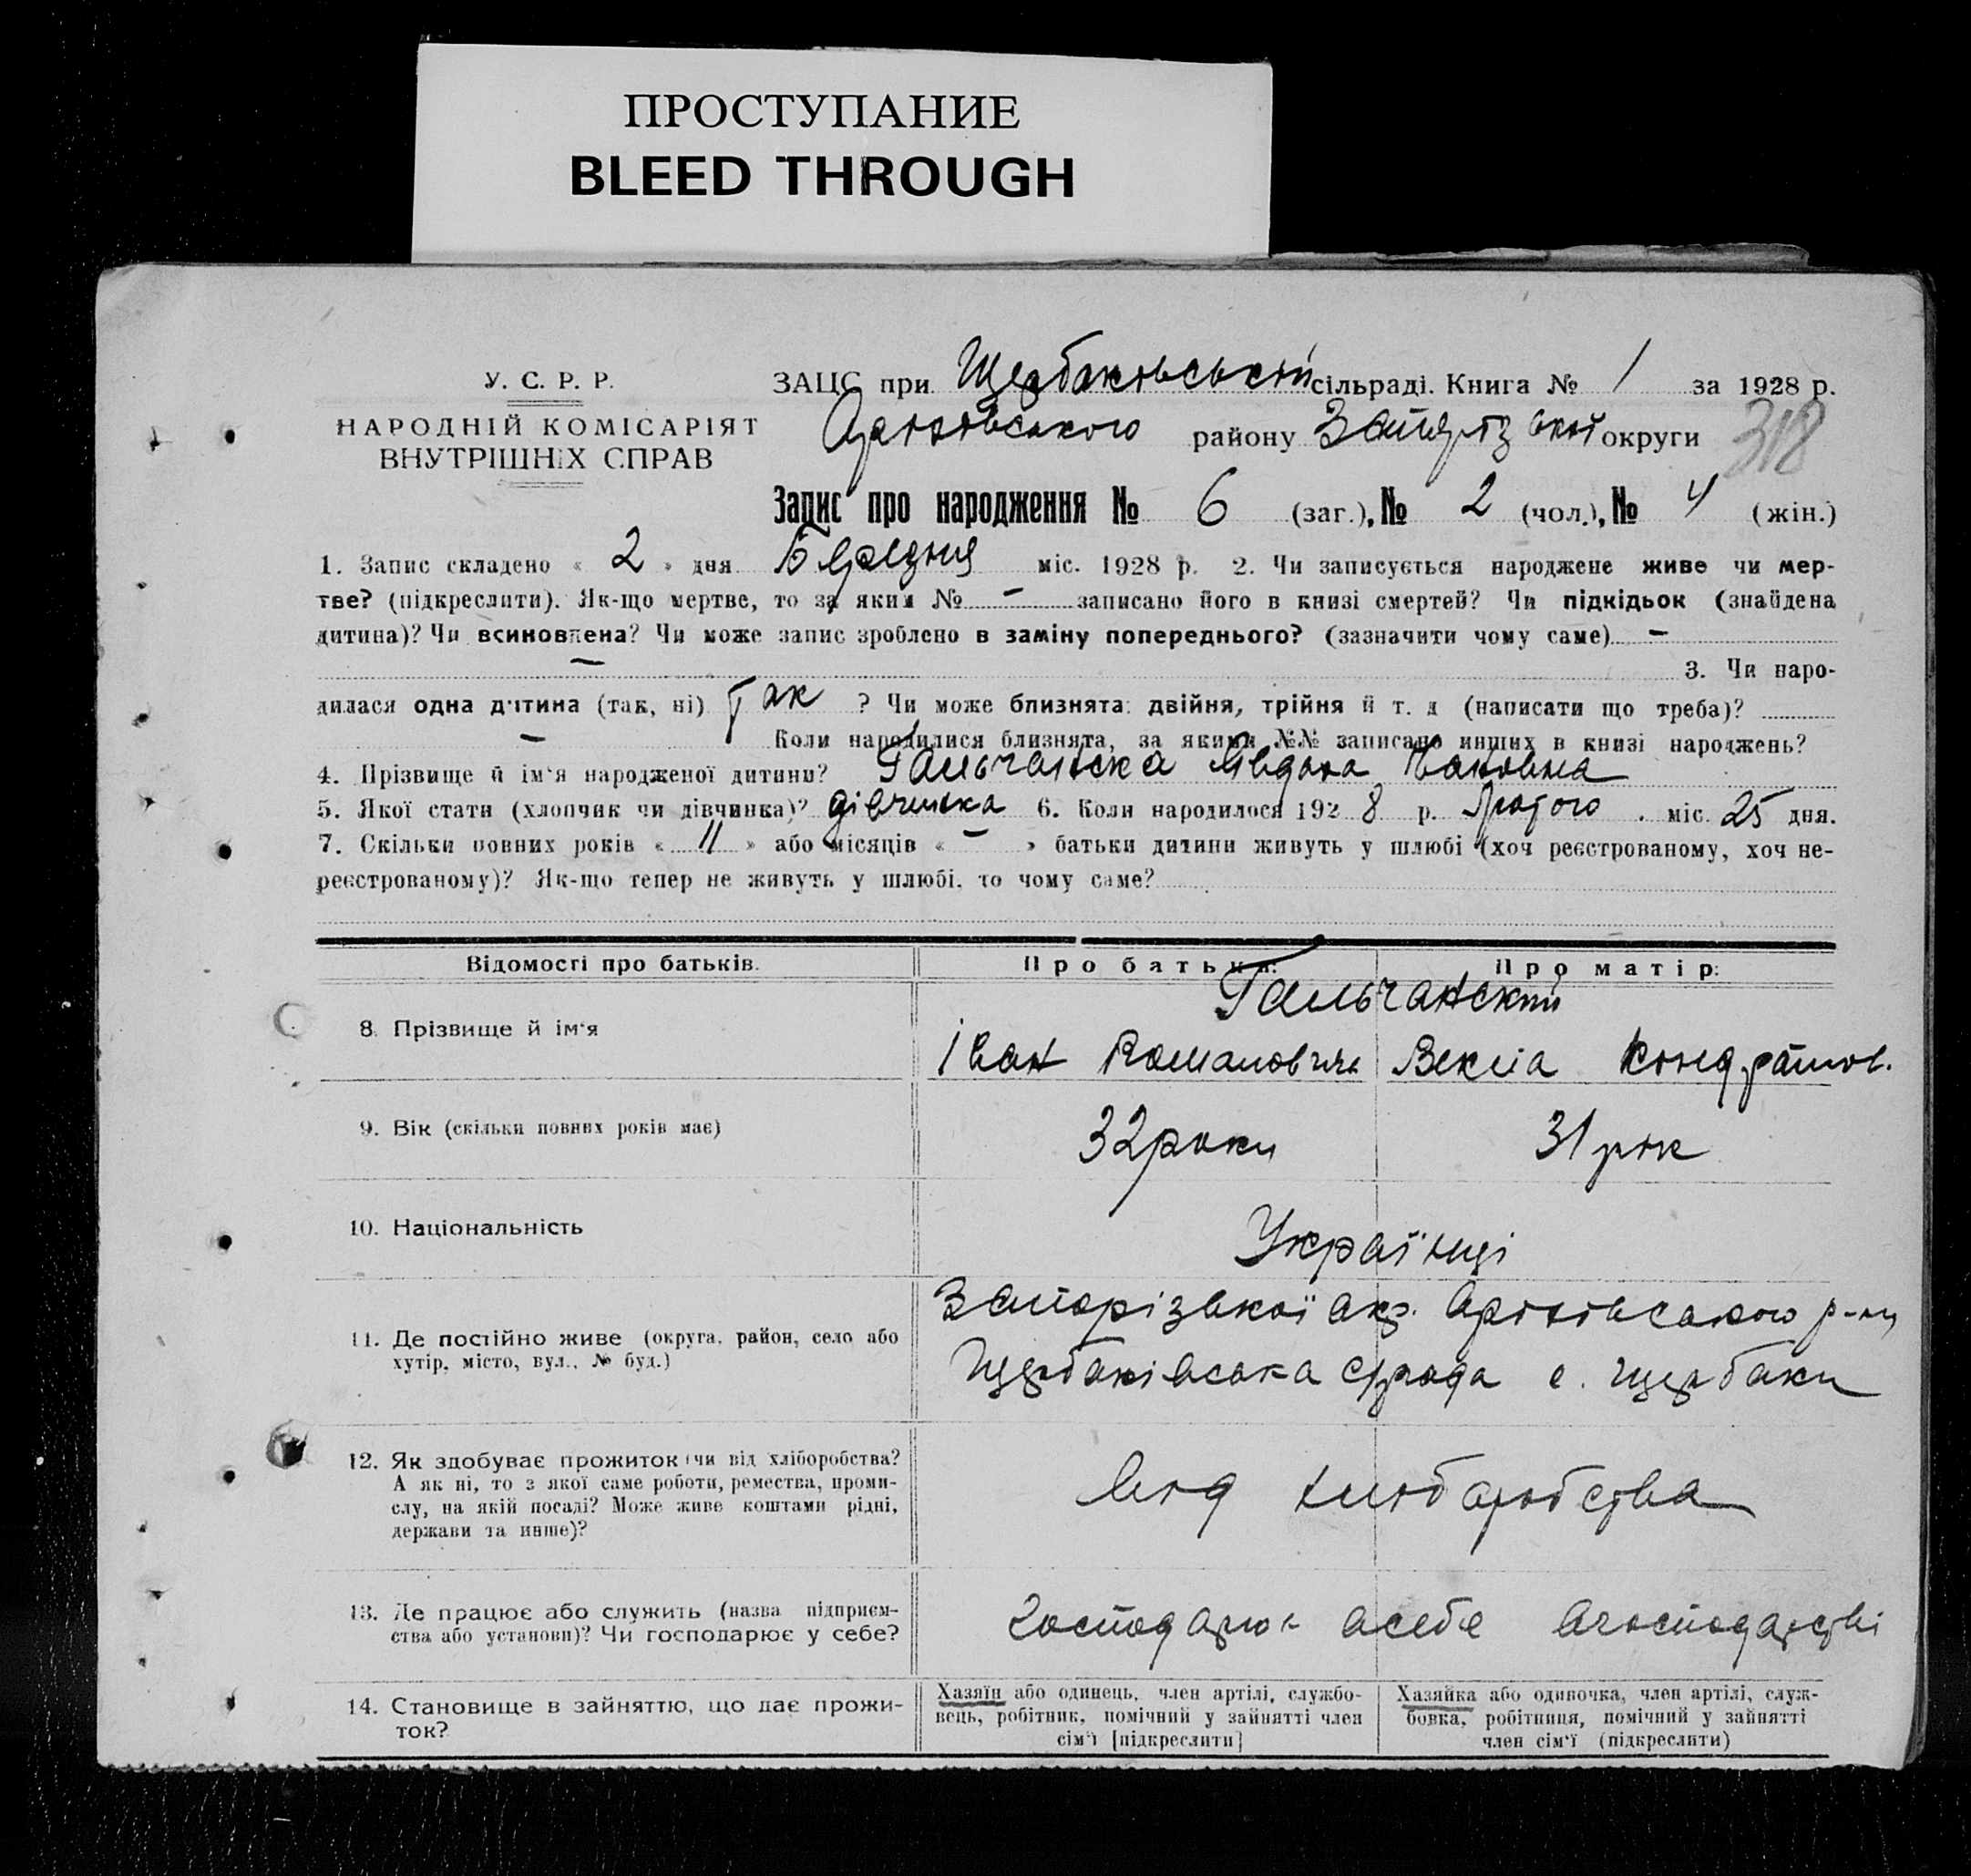 ПРОСТУПАНИЕ
BLEED THROUGH
У. С. Р. Р.
НАРОДНІЙ КОМІСАРІЯТ
ВНУТРІШНІХ СПРАВ
ЗАЦС при Щербаковській сільраді. Книга № 1 за 1928 р.
Оріхівського району Запоріз округи
318
Запис про народження № 6 (заг.), № 2 (чол.), № 4 (жін.)
1. Запис складено « 2 » дня Березня міс. 1928 р. 2. Чи записується народжене живе чи мер-
тве? (підкреслити). Як-що мертве, то за яким № – записано його в книзі смертей? Чи підкідьок (знайдена
дитина)? Чи всиновлена? Чи може запис зроблено в заміну попереднього? (зазначити чому саме) –
– 3. Чи наро-
дилася одна дитина (так, ні) Так ? Чи може близнята: двійня, трійня й т. д (написати що треба)?
– Коли народилися близнята, за якими №№ записано инших в книзі народжень?
4. Прізвище й ім'я народженої дитини? Гальчанска Явдоха Івановна
5. Якої стати (хлопчик чи дівчинка)? дівчинка 6. Коли народилося 1928 р. Лютого міс. 25 дня.
7. Скільки повних років « 11 » або місяців « – » батьки дитини живуть у шлюбі (хоч реєстрованому, хоч не-
реєстрованому)? Як-що тепер не живуть у шлюбі, то чому саме?
Відомості про батьків. Про батька: Про матір:
Гальчанский
8. Прізвище й ім'я Іван Романович Векла Кондратов.
9. Вік (скільки повних років має) 32 роки 31 рік
10. Національність Українці
11. Де постійно живе (округа, район, село або
хутір, місто, вул., № буд.)
Запорізької окр. Оріхівського р-ну
Щербаківська с/рада с. Щербаки
12. Як здобуває прожиток (чи від хліборобства?
А як ні, то з якої саме роботи, ремества, проми-
слу, на якій посаді? Може живе коштами рідні,
держави та инше)?
від хліборобства
13. Де працює або служить (назва підприєм-
ства або установи)? Чи господарює у себе?
Господарює усебе
14. Становище в зайняттю, що дає прожи-
ток?
Хазяїн або одинець, член артілі, службо-
вець, робітник, помічний у зайнятті член
сім'ї [підкреслити]
Хазяйка або одиночка, член артілі, служ-
бовка, робітниця, помічний у зайнятті
член сім'ї (підкреслити)